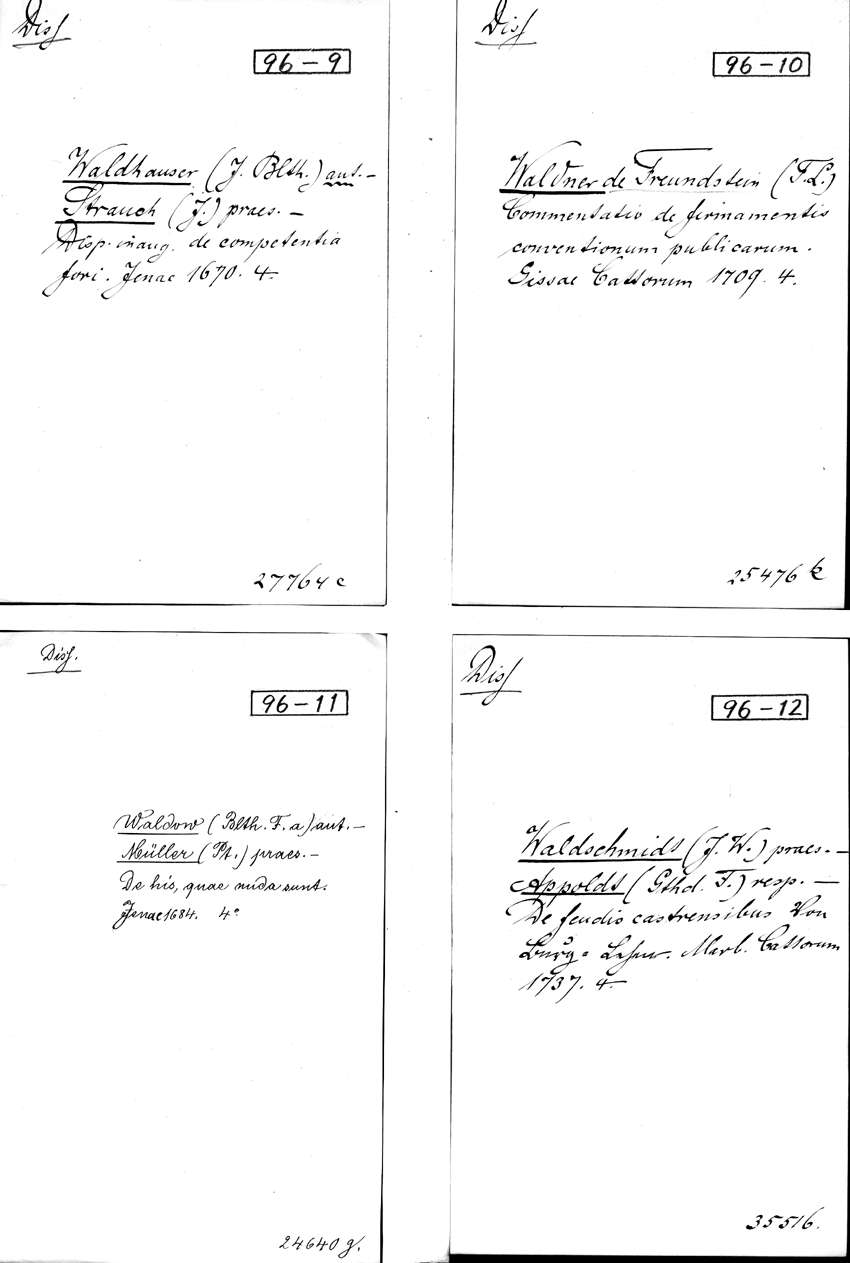 Diss
96-9
Waldhauser (J. Blth.) aut. -
Strauch (J.) praes. -
Disp. inaug. de competentia
fori. Jenae 1670. 4.
27764 c
Diss
96-10
Waldner de Freundstein (F. L.)
Commentatio de firmamentis
conventionum publicarum.
Gissae Cattorum 1709. 4.
25476 k
Diss.
96-11
Waldow (Blth. F. a) aut. -
Müller (Pt.) praes. -
De his, quae nuda sunt.
Jenae 1684. 4°
24640 g.
Diss
96-12
Waldschmidt (J. W.) praes. -
Appoldt (Gthd. F.) resp. -
De feudis castrensibus Von
Burg-Lehnr. Marb. Cattorum
1737. 4.
35516.